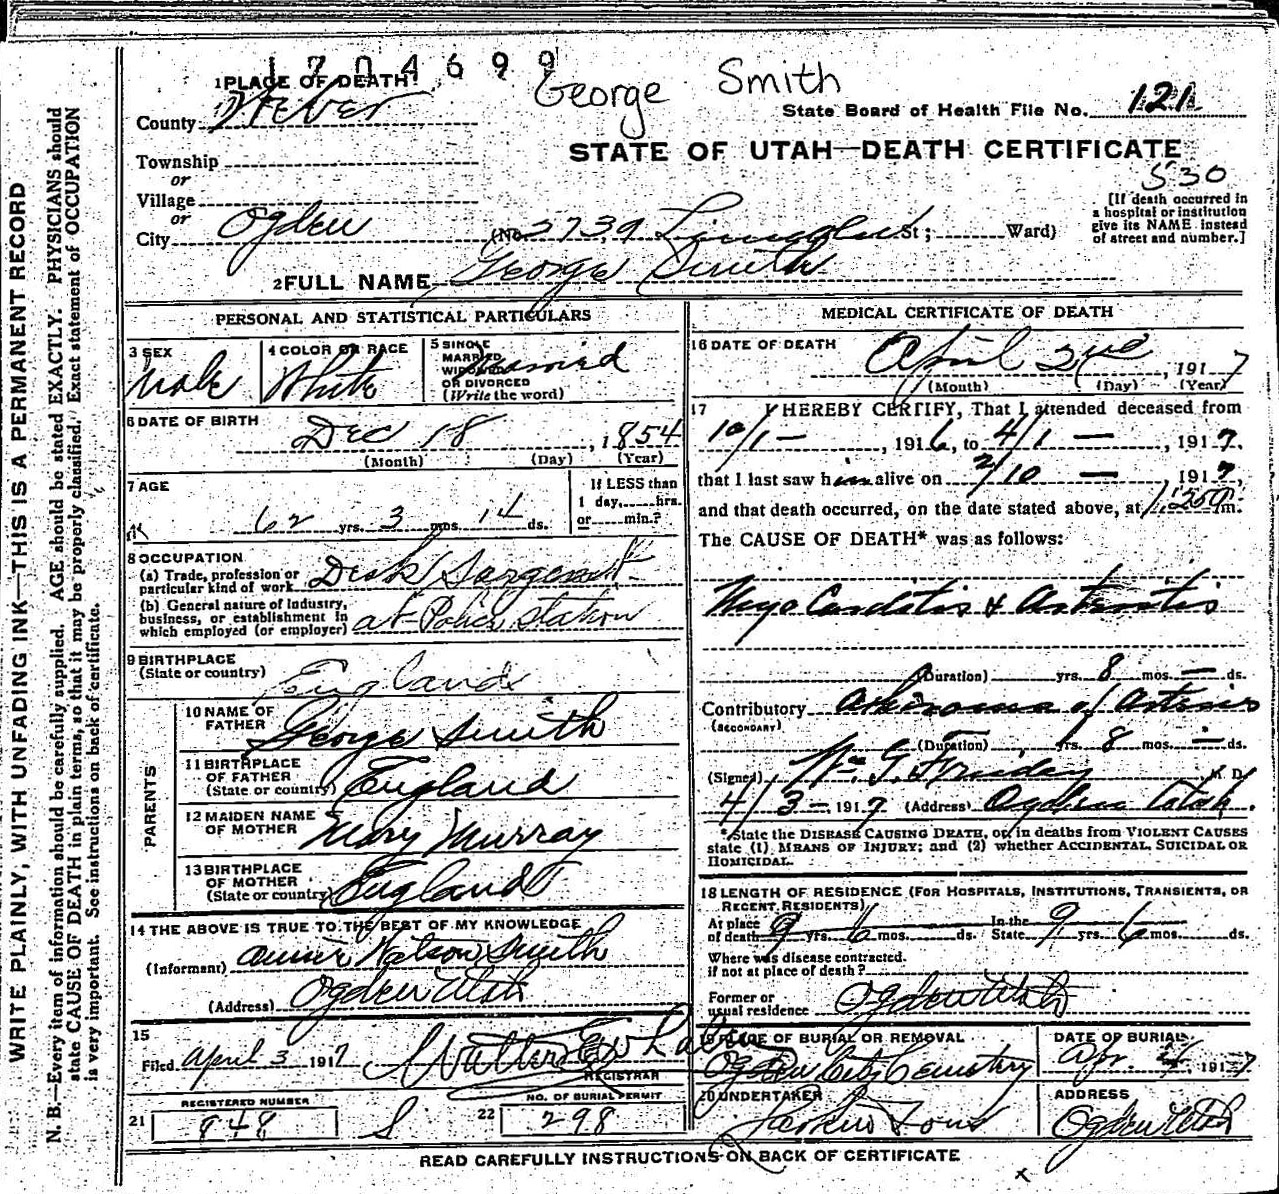 1704699
George Smith
1 PLACE OF DEATH
State Board of Health File No. 121
County Weber
STATE OF UTAH—DEATH CERTIFICATE
530
Township
or
Village
or
City Ogden (No. 3739 Lincoln St; Ward)
[If death occurred in
a hospital or institution
give its NAME instead
of street and number.]
2 FULL NAME George Smith
PERSONAL AND STATISTICAL PARTICULARS
3 SEX Male
4 COLOR OR RACE White
5 SINGLE
MARRIED
WIDOWED
OR DIVORCED
(Write the word) Married
6 DATE OF BIRTH Dec 18, 1854
(Month) (Day) (Year)
7 AGE 62 yrs. 3 mos. 14 ds.
If LESS than
1 day, hrs.
or min.?
8 OCCUPATION
(a) Trade, profession or
particular kind of work Desk Sargent
(b) General nature of industry,
business, or establishment in
which employed (or employer) at Police Station
9 BIRTHPLACE
(State or country) England
PARENTS
10 NAME OF
FATHER George Smith
11 BIRTHPLACE
OF FATHER
(State or country) England
12 MAIDEN NAME
OF MOTHER Mary Murray
13 BIRTHPLACE
OF MOTHER
(State or country) England
14 THE ABOVE IS TRUE TO THE BEST OF MY KNOWLEDGE
(Informant) Watson Smith
(Address) Ogden Utah
15
Filed April 3 1917
REGISTRAR
REGISTERED NUMBER
21 848 S
NO. OF BURIAL PERMIT
22 298
MEDICAL CERTIFICATE OF DEATH
16 DATE OF DEATH April 2nd, 1917
(Month) (Day) (Year)
17 I HEREBY CERTIFY, That I attended deceased from
10/1 —, 1916, to 4/1 — 1917.
that I last saw him alive on 2/10 —, 1917,
and that death occurred, on the date stated above, at m.
The CAUSE OF DEATH* was as follows:
Myo Carditis &
(Duration) yrs. 8 mos. — ds.
Contributory of
(SECONDARY)
(Duration) yrs. 8 mos. — ds.
(Signed) M. D.
4/3 — 1917 (Address) Ogden Utah.
*State the DISEASE CAUSING DEATH, or, in deaths from VIOLENT CAUSES
state (1) MEANS OF INJURY; and (2) whether ACCIDENTAL, SUICIDAL OR
HOMICIDAL.
18 LENGTH OF RESIDENCE (FOR HOSPITALS, INSTITUTIONS, TRANSIENTS, OR
RECENT RESIDENTS)
At place
of death 9 yrs. 6 mos. ds. In the
State 9 yrs. 6 mos. ds.
Where was disease contracted.
if not at place of death?
Former or
usual residence Ogden Utah
19 PLACE OF BURIAL OR REMOVAL
Ogden City Cemetery
DATE OF BURIAL
Apr. 1917
20 UNDERTAKER
Larkin Sons
ADDRESS
Ogden Utah
READ CAREFULLY INSTRUCTIONS ON BACK OF CERTIFICATE
x
WRITE PLAINLY, WITH UNFADING INK—THIS IS A PERMANENT RECORD
N. B.—Every item of information should be carefully supplied. AGE should be stated EXACTLY. PHYSICIANS should
state CAUSE OF DEATH in plain terms, so that it may be properly classified. Exact statement of OCCUPATION
is very important. See instructions on back of certificate.